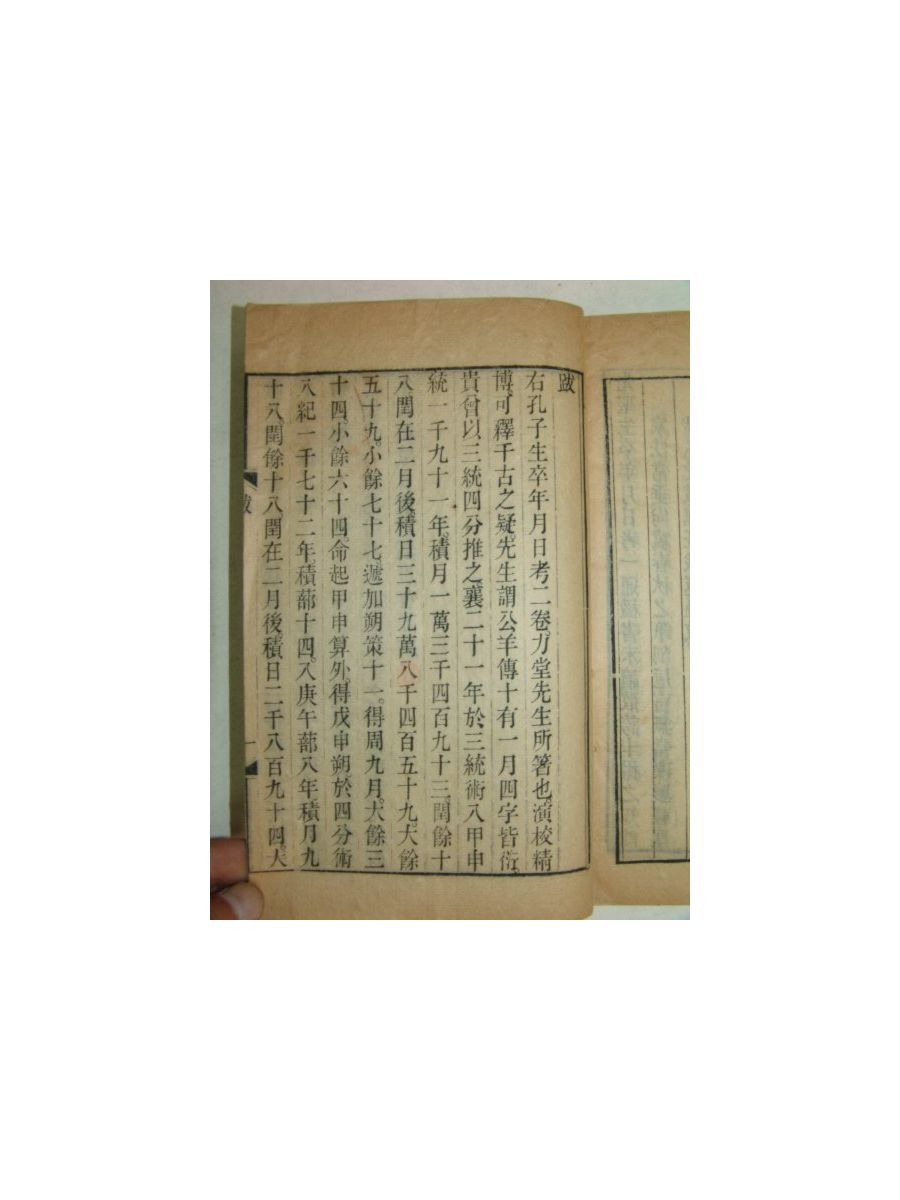 跋
右孔子生卒年月日考二卷。力堂先生所箸也。演校精
博。可釋千古之疑。先生謂公羊傳十有一月四字皆衍。
貴曾以三統四分推之。襄二十一年於三統術入甲申
統一千九十一年。積月一萬三千四百九十三閏餘十
八。閏在二月後。積日三十九萬八千四百五十九。大餘
五十九。小餘七十七。遞加朔策十一。得周九月。大餘三
十四。小餘六十四命起甲申算外。得戊申朔。於四分術
入紀一千七十二年。積蔀十四。入庚午蔀八年。積月九
十八。閏餘十八。閏在二月後。積日二千八百九十四。大
跋
一